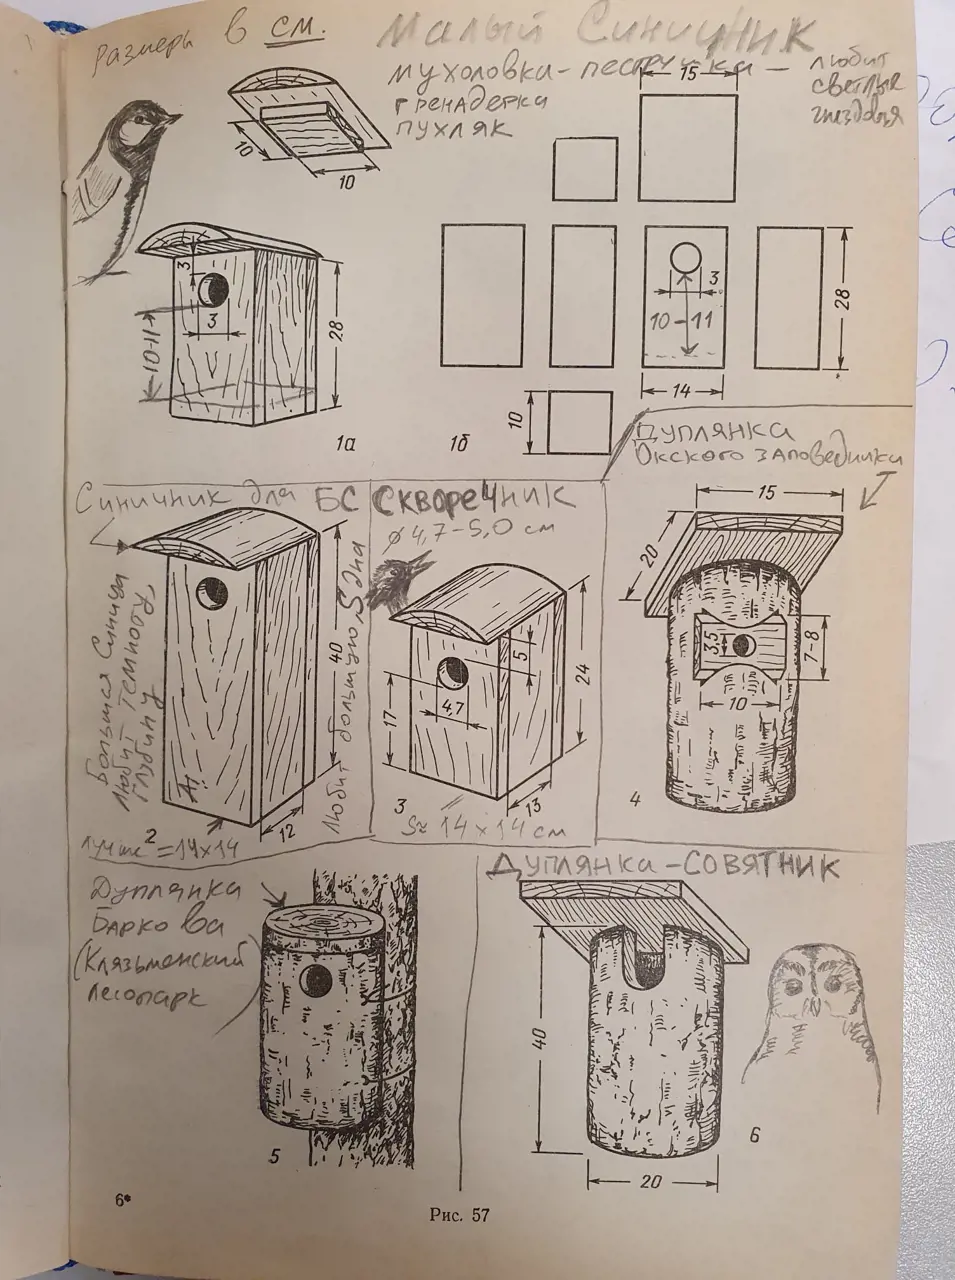 Размеры в см.
Малый Синичник
мухоловка-пеструшка -
гренадерка
пухляк
любит
светлые
гнездовья
15
10
10
3
3
10-11
28
1а
3
10-11
14
28
10
1б
Дуплянка
Окского заповедника
Синичник для БС
Большая Синица
любит темноту и
глубину
40
любит большую S дна
12
лучше 2 = 14×14
Скворечник
ø 4,7-5,0 см
5
4,7
17
24
13
3
S≈ 14×14 см
15
20
3,5
7-8
10
4
Дуплянка
Баркова
(Клязьменский
лесопарк
5
Дуплянка-совятник
40
20
6
6*
Рис. 57